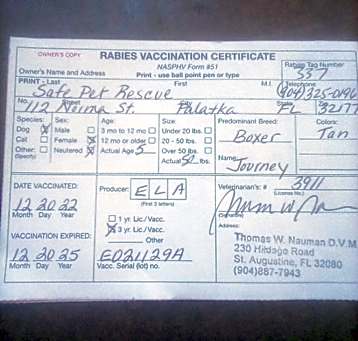 OWNER'S COPY
RABIES VACCINATION CERTIFICATE
NASPHV Form #51
Rabies Tag Number
337
Owner's Name and Address
Print - use ball point pen or type
PRINT - Last First M.I. Telephone
Safe Pet Rescue (904)325-0196
No. Street City State Zip
112 Norma St. Palatka FL 32177
Species: Sex: Age: Size: Predominant Breed: Colors:
Dog Male 3 mo to 12 mo Under 20 lbs. Boxer Tan
Cat Female 12 mo or older 20 - 50 lbs.
Other: Neutered Actual Age 5 Over 50 lbs. Name
(Specify) Actual 50 lbs. Journey
DATE VACCINATED: Producer: E L A Veterinarian's: # 3911
(First 3 letters) (License No.)
12 20 22
Month Day Year 1 yr. Lic./Vacc.
3 yr. Lic./Vacc. (Signature)
VACCINATION EXPIRED: Other Address:
12 20 25 E021129A
Month Day Year Vacc. Serial (lot) no.
Thomas W. Nauman D.V.M.
230 Hildago Road
St. Augustine, FL 32080
(904)887-7943